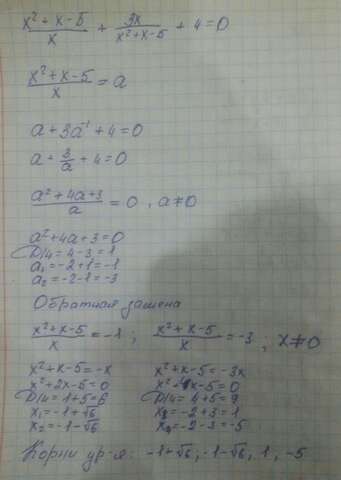 x²+x-5/x + 3x/x²+x-5 + 4=0
x²+x-5/x = a
a+3a⁻¹+4=0
a+3/a+4=0
a²+4a+3/a = 0, a≠0
a²+4a+3=0
D/4=4-3=1
a₁=-2+1=-1
a₂=-2-1=-3
Обратная замена
x²+x-5/x = -1; x²+x-5/x = -3; x≠0
x²+x-5=-x x²+x-5=-3x
x²+2x-5=0 x²+4x-5=0
D/4=1+5=6 D/4=4+5=9
x₁=-1+√6 x₃=-2+3=1
x₂=-1-√6 x₄=-2-3=-5
Корни ур-я: -1+√6; -1-√6, 1, -5